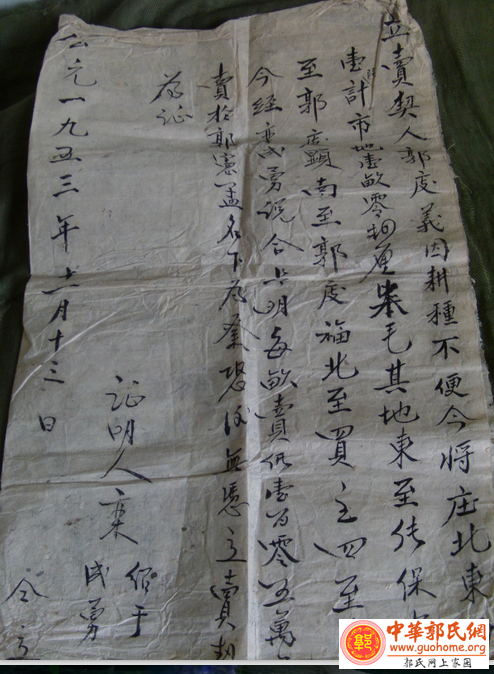 立賣契人郭度義因耕種不便今將庄北東
壹計市地壹畝零 厘 毛其地東至 保
至郭度顯南至郭度福北至買主四至
今經 民勇说合上明每畝賣价壹百零五萬
賣於郭憲孟名下為業恐後無憑立賣契
為证
公元一九五三年 月十三日
证明人
绍于
民勇
仝立
中華郭氏網
www.guohome.org
郭氏网上家園